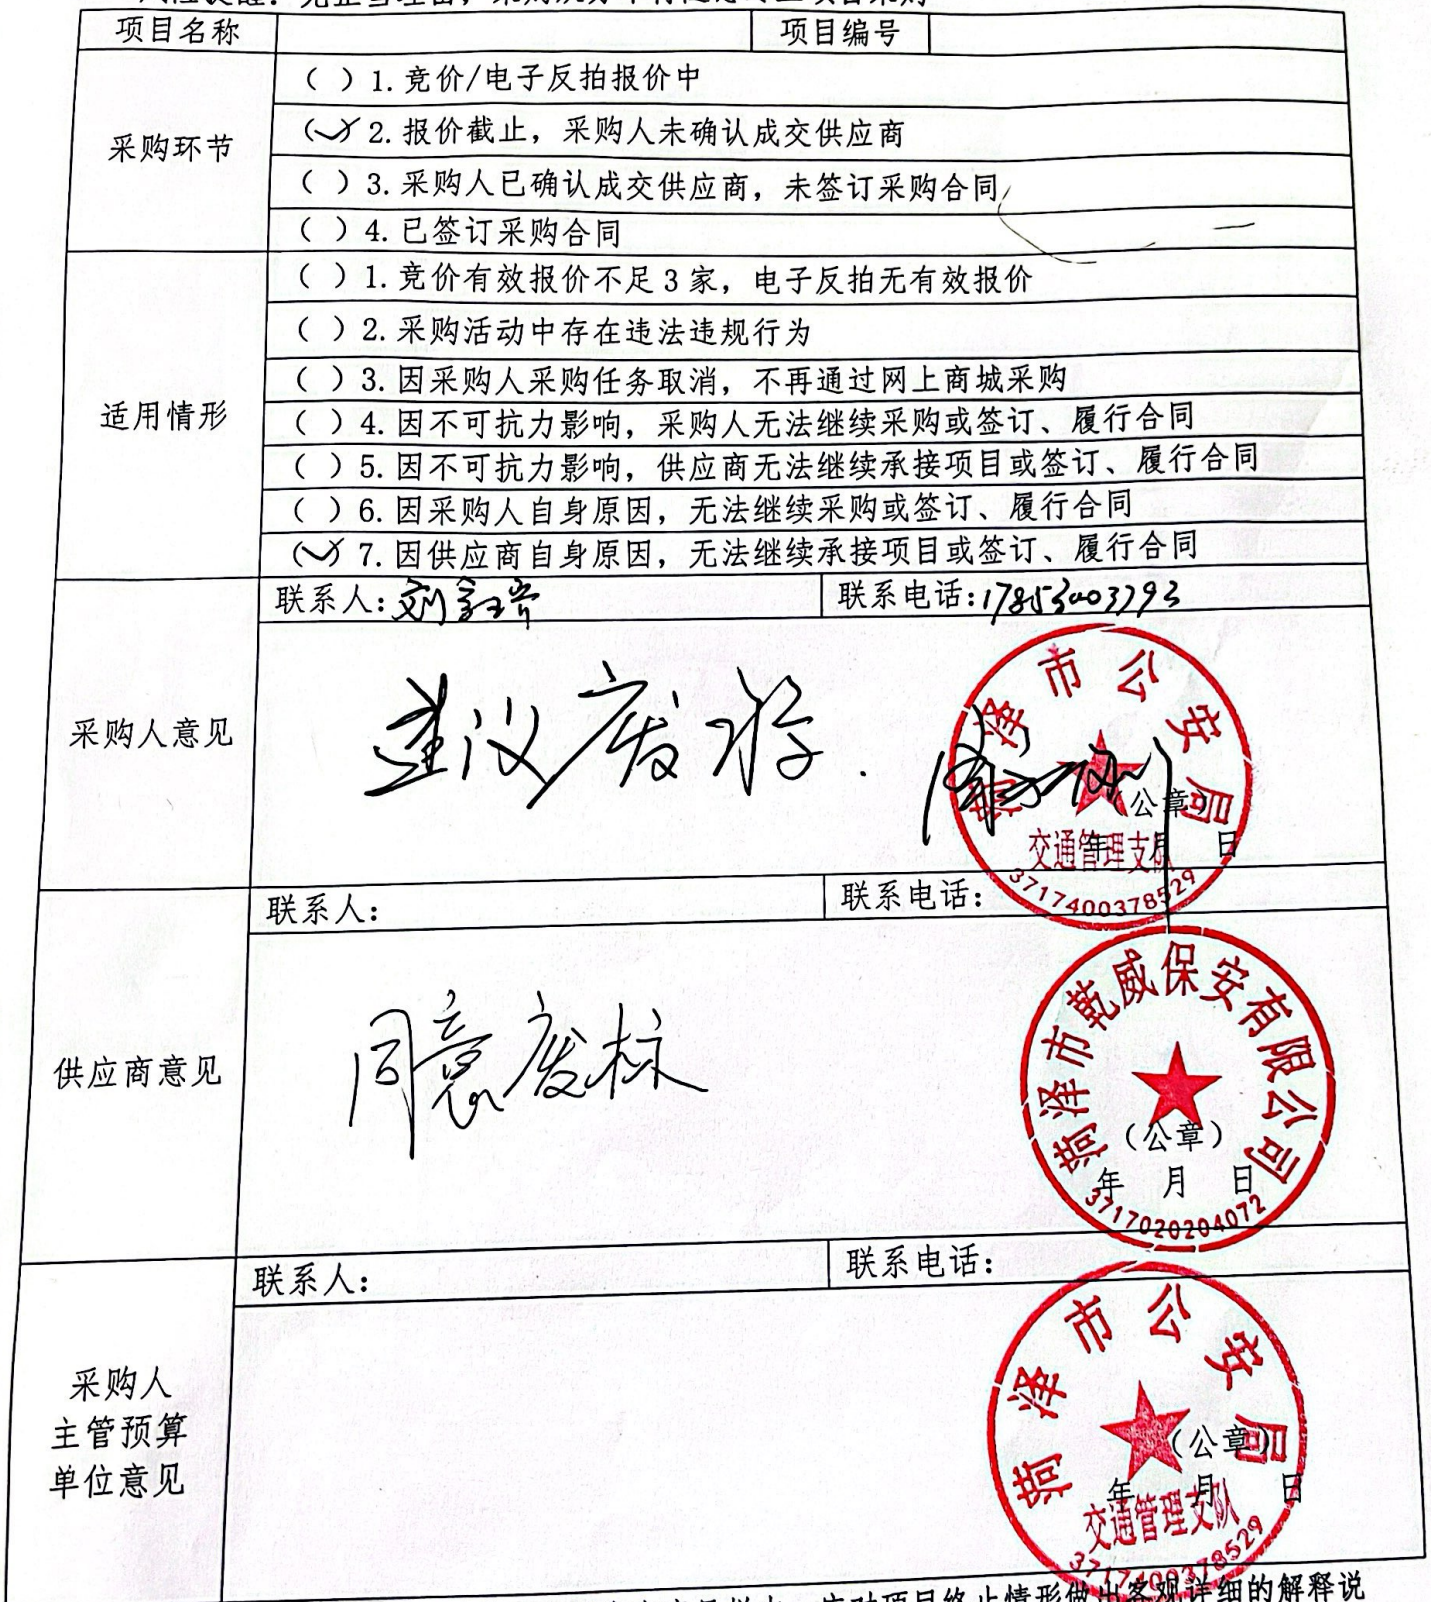 项目名称 项目编号
采购环节
( ) 1. 竞价/电子反拍报价中
(✓) 2. 报价截止，采购人未确认成交供应商
( ) 3. 采购人已确认成交供应商，未签订采购合同
( ) 4. 已签订采购合同
适用情形
( ) 1. 竞价有效报价不足 3 家，电子反拍无有效报价
( ) 2. 采购活动中存在违法违规行为
( ) 3. 因采购人采购任务取消，不再通过网上商城采购
( ) 4. 因不可抗力影响，采购人无法继续采购或签订、履行合同
( ) 5. 因不可抗力影响，供应商无法继续承接项目或签订、履行合同
( ) 6. 因采购人自身原因，无法继续采购或签订、履行合同
(✓) 7. 因供应商自身原因，无法继续承接项目或签订、履行合同
采购人意见
联系人: 联系电话: 17853003793
建议废标.
菏泽市公安局
(公章)
交通管理支队
年 月 日
3717400378529
供应商意见
联系人: 联系电话:
同意废标
菏泽市乾威保安有限公司
(公章)
年 月 日
3717020204072
采购人
主管预算
单位意见
联系人: 联系电话:
菏泽市公安局
(公章)
年 月 日
交通管理支队
3717400378529
应对项目终止情形做出客观详细的解释说